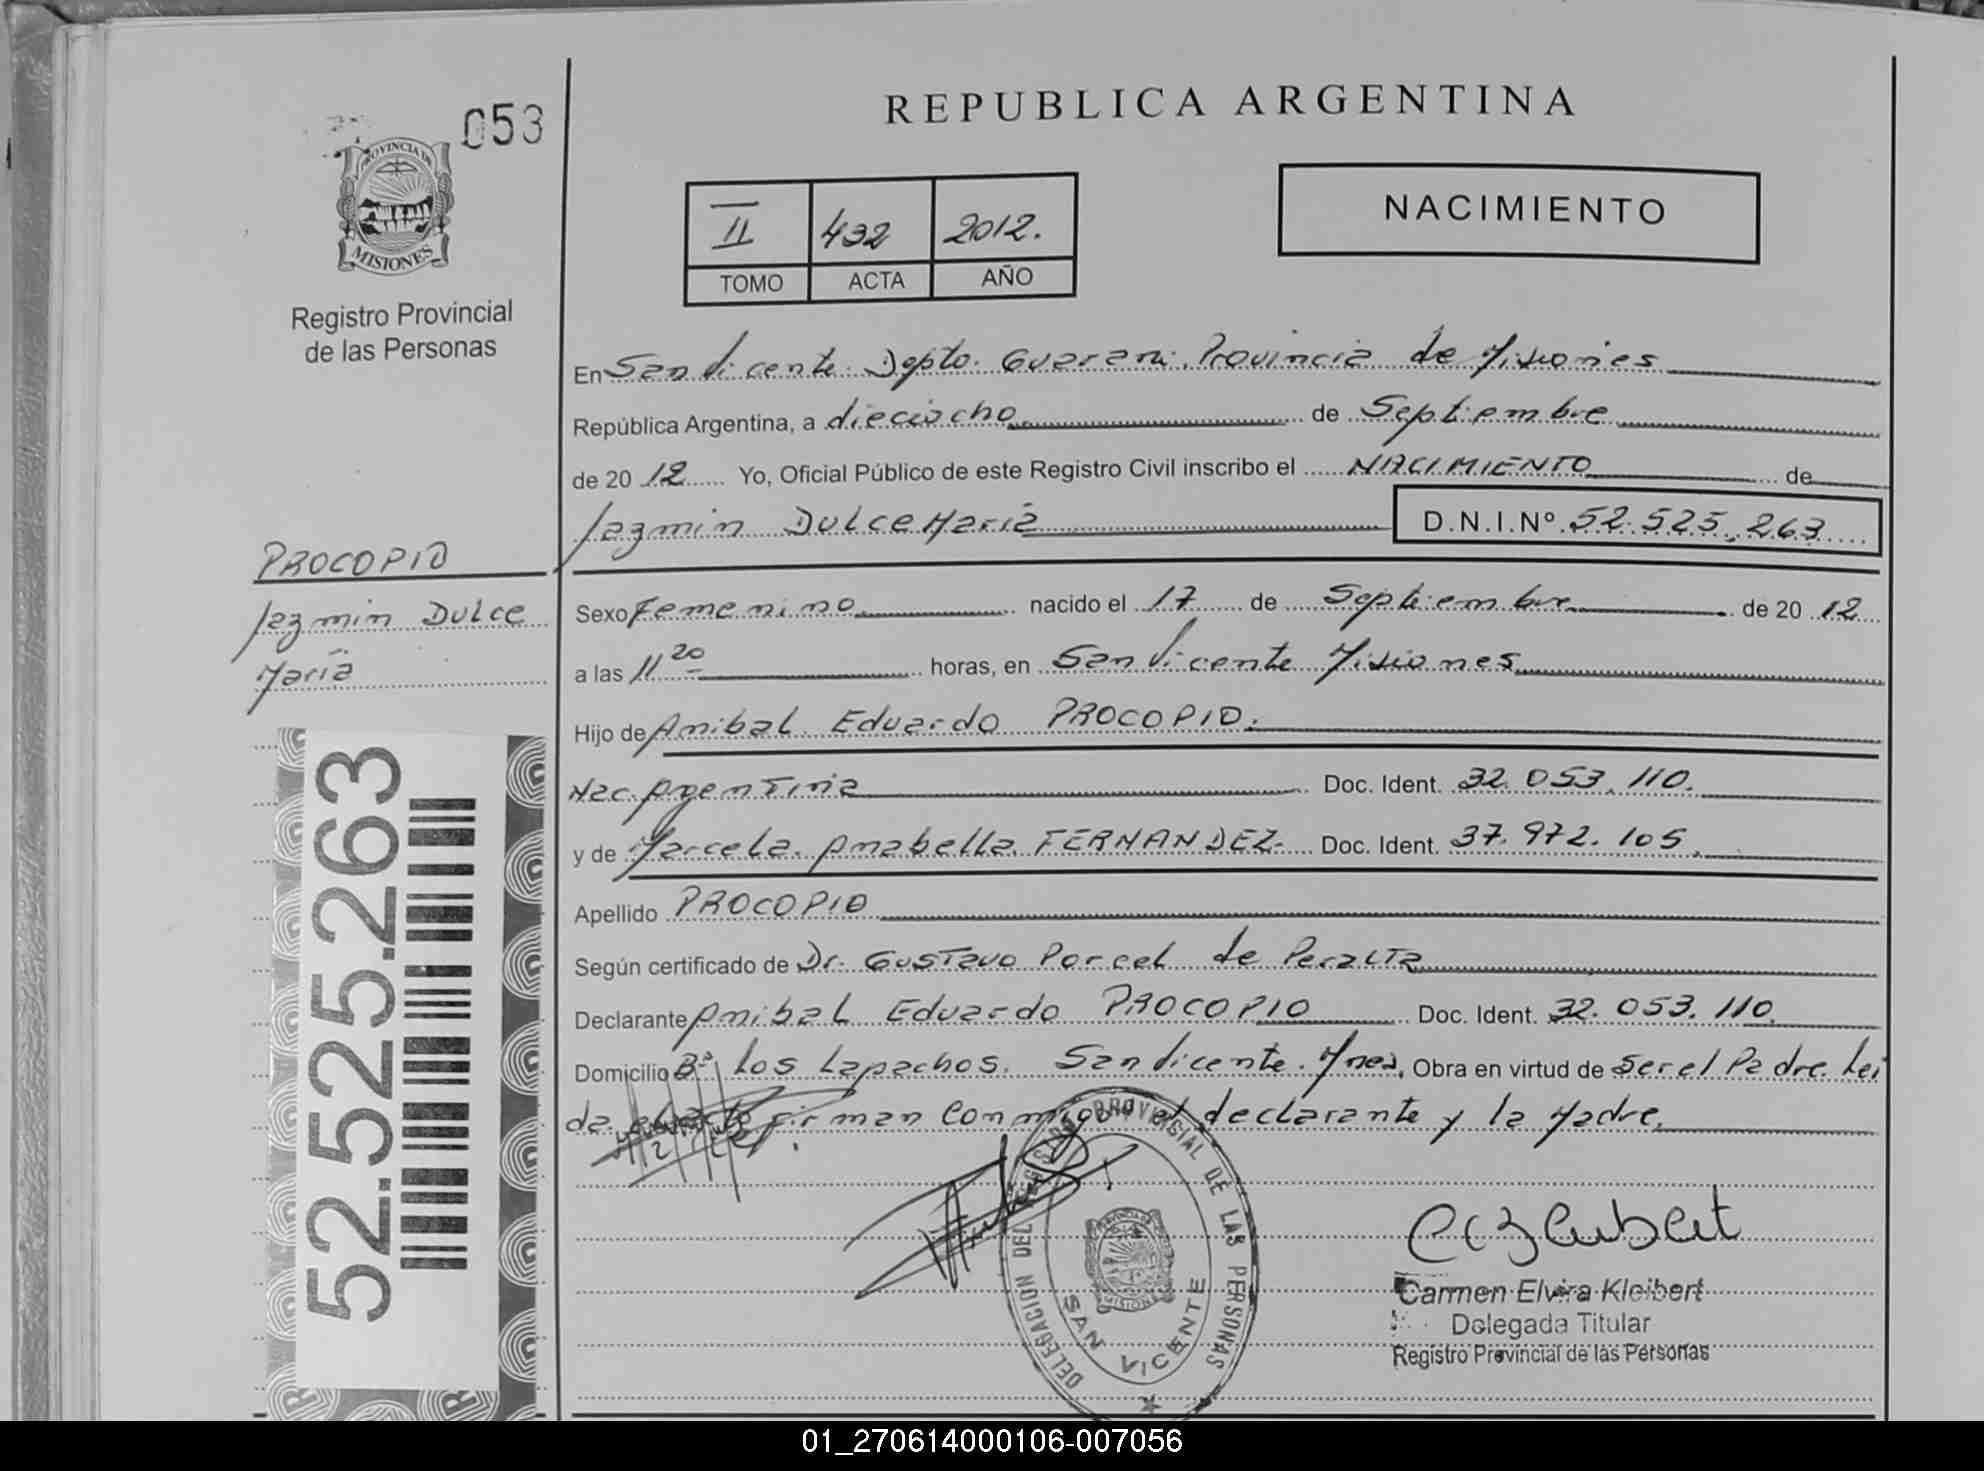 053
PROVINCIA DE
MISIONES
Registro Provincial
de las Personas
REPUBLICA ARGENTINA
II 432 2012.
TOMO ACTA AÑO
NACIMIENTO
En San Vicente Depto. Guarani. Provincia de Misiones
República Argentina, a dieciocho de Septiembre
de 20 12 Yo, Oficial Público de este Registro Civil inscribo el NACIMIENTO de
Jazmin DULCE María
D.N.I.Nº 52.525.263
PROCOPIO
Jazmin DULCE
María
Sexo Femenino nacido el 17 de Septiembre de 20 12
a las 11 20 horas, en San Vicente Misiones
Hijo de Anibal Eduardo PROCOPIO.
Nac. Argentina Doc. Ident. 32.053.110.
y de Marcela Anabella FERNANDEZ- Doc. Ident. 37.972.105.
Apellido PROCOPIO
Según certificado de Dr. Gustavo Porcel de Peralta
Declarante Anibal Eduardo PROCOPIO Doc. Ident. 32.053.110.
Domicilio Bº Los Lapachos. San Vicente. Mnes. Obra en virtud de ser el Padre. Lei
da el acta firman conmigo el declarante y la Madre.
52.525.263
DELEGACION DEL REGISTRO PROVINCIAL DE LAS PERSONAS
SAN VICENTE
Carmen Elvira Kleibert
Delegada Titular
Registro Provincial de las Personas
01_270614000106-007056